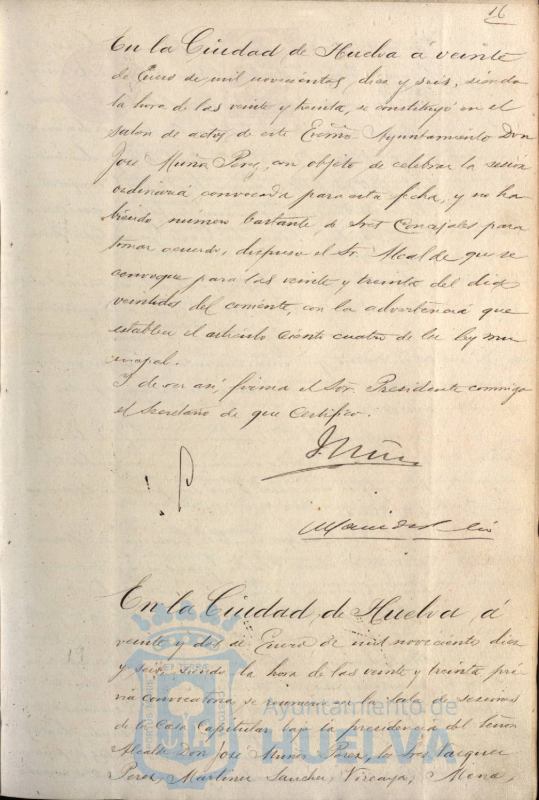 16
En la Ciudad de Huelva á veinte
de Enero de mil novecientos diez y seis, siendo
la hora de las veinte y treinta, se constituyó en el
salon de actos de este Excmo Ayuntamiento Don
José Muñoz Perez, con objeto de celebrar la sesion
ordinaria convocada para esta fecha, y no ha
biendo numero bastante de Sres Concejales para
tomar acuerdo, dispuso el Sr. Alcalde que se
convoque para las veinte y treinta del dia
veintidos del corriente, con la advertencia que
establece el articulo ciento cuatro de la ley mu
nicipal.
Y de ser asi, firma el Sor. Presidente conmigo
el Secretario de que Certifico.
J. Muñ
En la Ciudad, de Huelva á
veinte y dos de Enero de mil novecientos diez
y seis, siendo la hora de las veinte y treinta pré
via convocatoria, se reunieron en la sala de sesiones
de la Casa Capitular bajo la presidencia del Señor
Alcalde Don José Muñoz Perez, los Sres. Vazquez
Perez, Martinez Sanchez, Vizcaya, Mena,
Ayuntamiento de
HUELVA